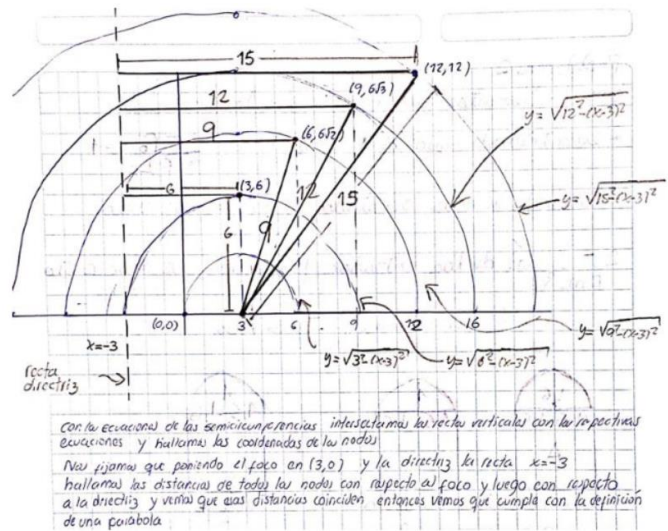 15
(12,12)
12
(9,6√3)
y=√12²-(x-3)²
9
(6,6√2)
12
15
y=√15²-(x-3)²
6
(3,6)
9
6
(0,0)
3
6
9
12
16
x=-3
y=√3²-(x-3)²
y=√6²-(x-3)²
y=√9²-(x-3)²
recta
directriz
con las ecuaciones de las semicircunferencias intersectamos las rectas verticales con las respectivas
ecuaciones y hallamos las coordenadas de los nodos
Nos fijamos que poniendo el foco en (3,0) y la directriz la recta x=-3
hallamos las distancias de todos los nodos con respecto al foco y luego con respecto
a la directriz y vemos que esas distancias coinciden entonces vemos que cumple con la definición
de una parabola